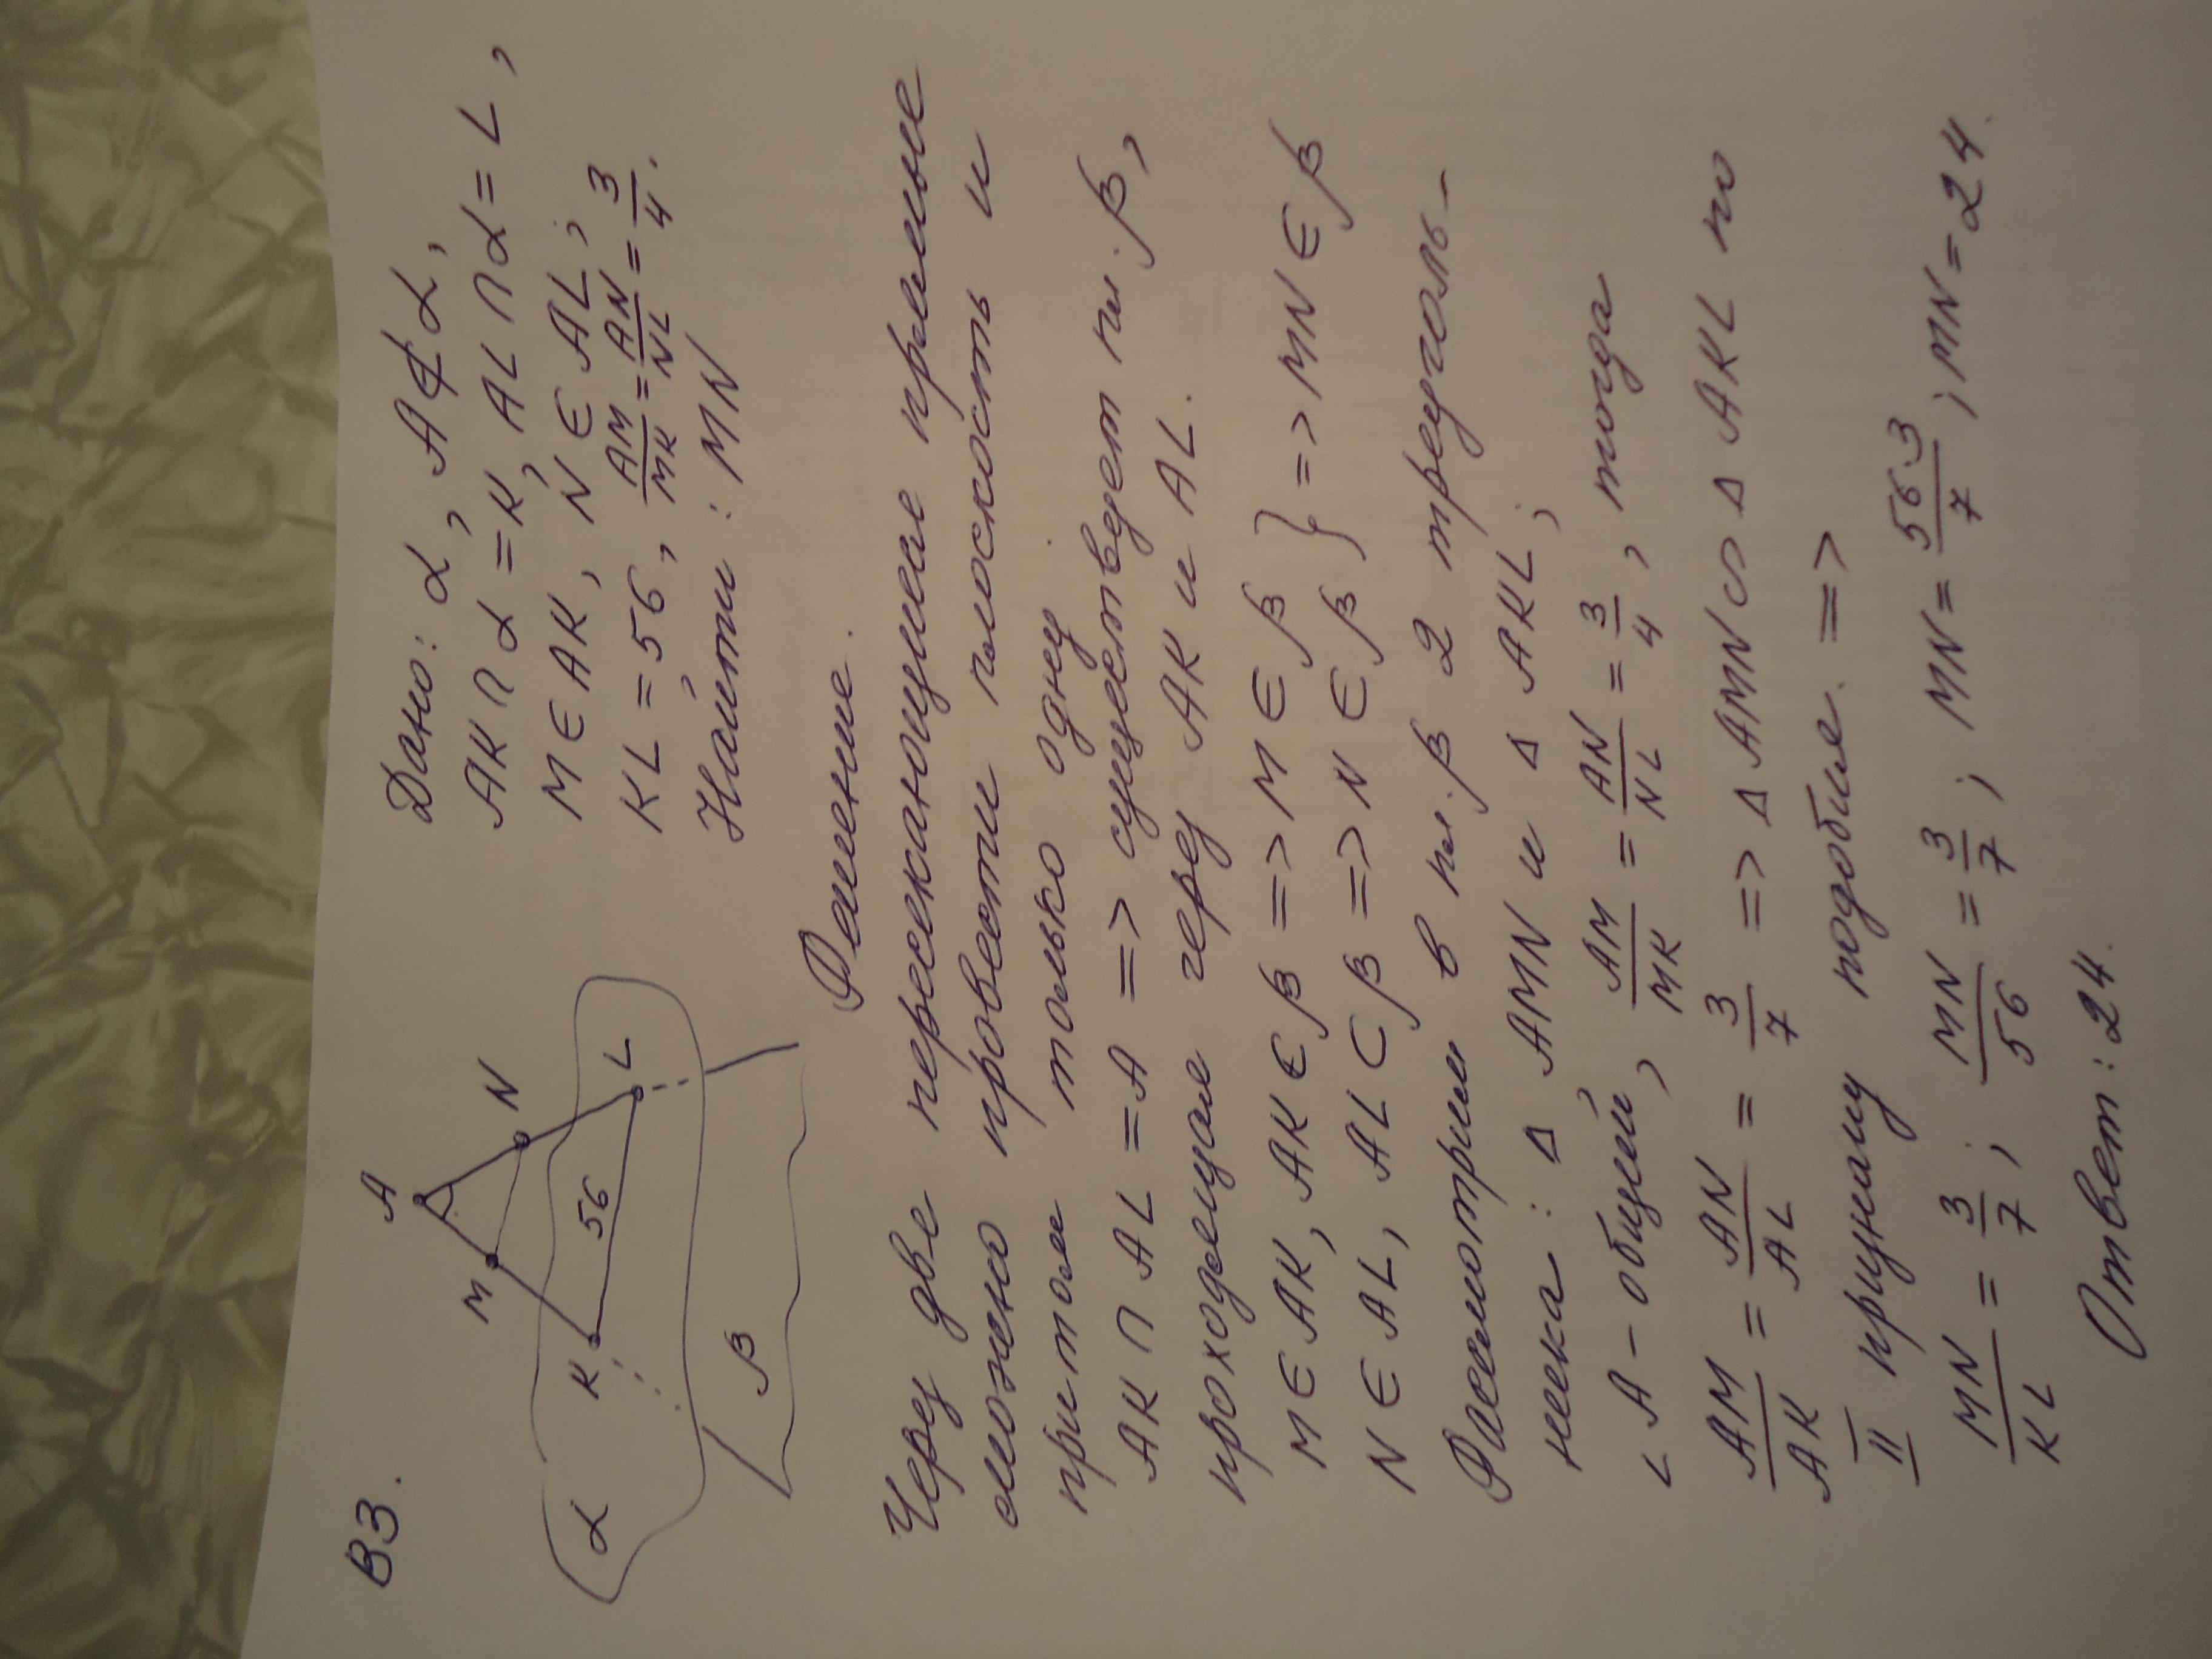 В3.
A
M
N
K
56
L
α
β
Дано: α, A ∉ α,
AK ∩ α = K, AL ∩ α = L,
M ∈ AK, N ∈ AL,
KL = 56, AM/MK = AN/NL = 3/4.
Найти: MN
Решение.
Через две пересекающиеся прямые
можно провести плоскость и
притом только одну.
AK ∩ AL = A => существует пл. β,
проходящая через AK и AL.
M ∈ AK, AK ∈ β => M ∈ β
N ∈ AL, AL ⊂ β => N ∈ β } => MN ∈ β
Рассмотрим в пл. β 2 треуголь-
ника: Δ AMN и Δ AKL;
∠ A - общий, AM/MK = AN/NL = 3/4, тогда
AM/AK = AN/AL = 3/7 => Δ AMN ∽ Δ AKL по
II признаку подобие. =>
MN/KL = 3/7; MN/56 = 3/7; MN = 56·3/7; MN = 24.
Ответ: 24.